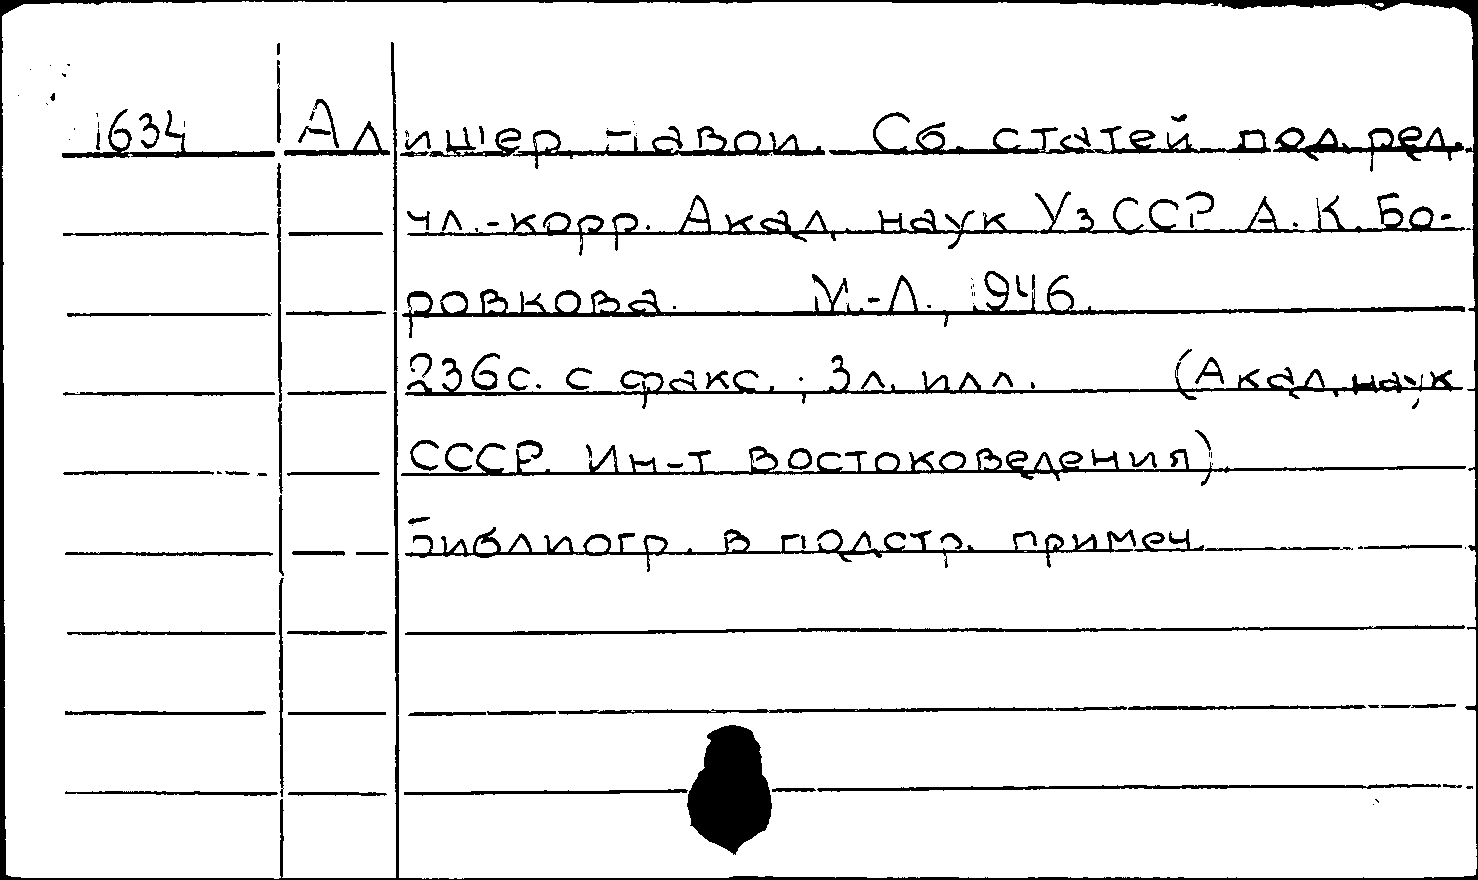 1634 Алишер Навои. Сб. статей под ред.
чл.-корр. Акад. наук УзССР А. К. Бо-
ровкова. М.-Л., 1946.
236с. с факс.; 3л. илл. (Акад. наук
СССР. Ин-т востоковедения)
Библиогр. в подстр. примеч.